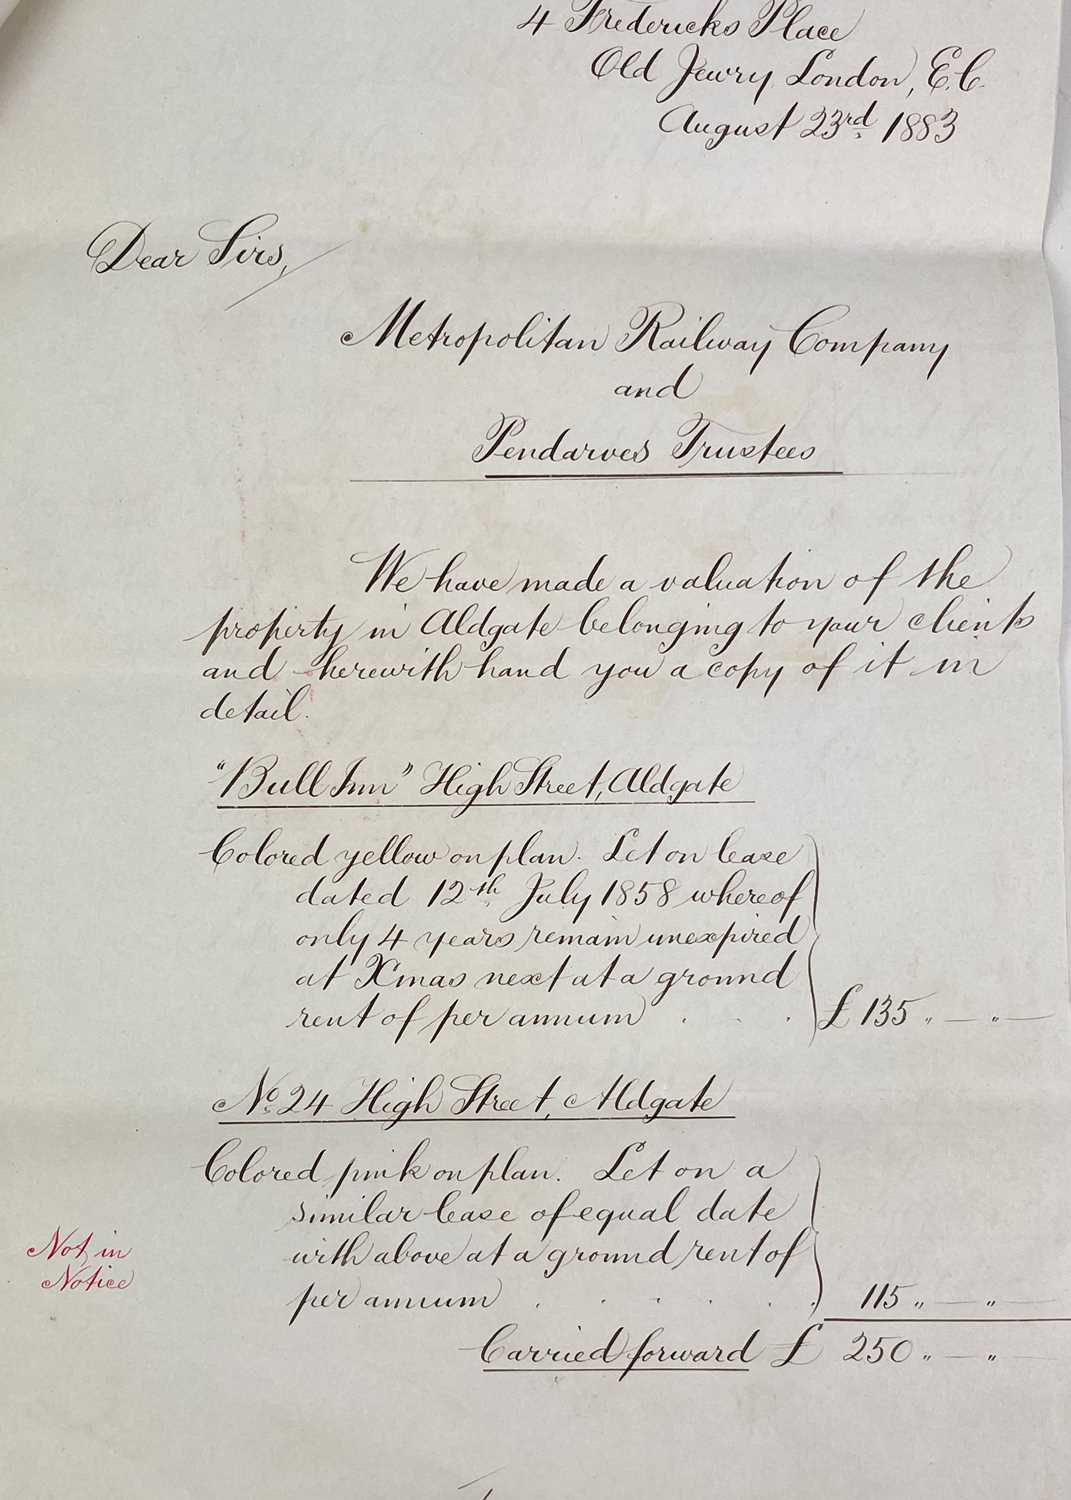 4 Fredericks Place
Old Jewry, London, E.C.
August 23rd 1883
Dear Sirs,
Metropolitan Railway Company
and
Pendarves Trustees
We have made a valuation of the
property in Aldgate belonging to your clients
and herewith hand you a copy of it in
detail.
"Bull Inn" High Street, Aldgate
Colored yellow on plan. Let on lease
dated 12th July 1858 whereof
only 4 years remain unexpired
at Xmas next at a ground
rent of per annum . . . £135 " — " —
No. 24 High Street, Aldgate
Colored pink on plan. Let on a
similar lease of equal date
Not in
with above at a ground rent of
Notice
per annum . . . . . . 115 " — " —
Carried forward £ 250 " — " —